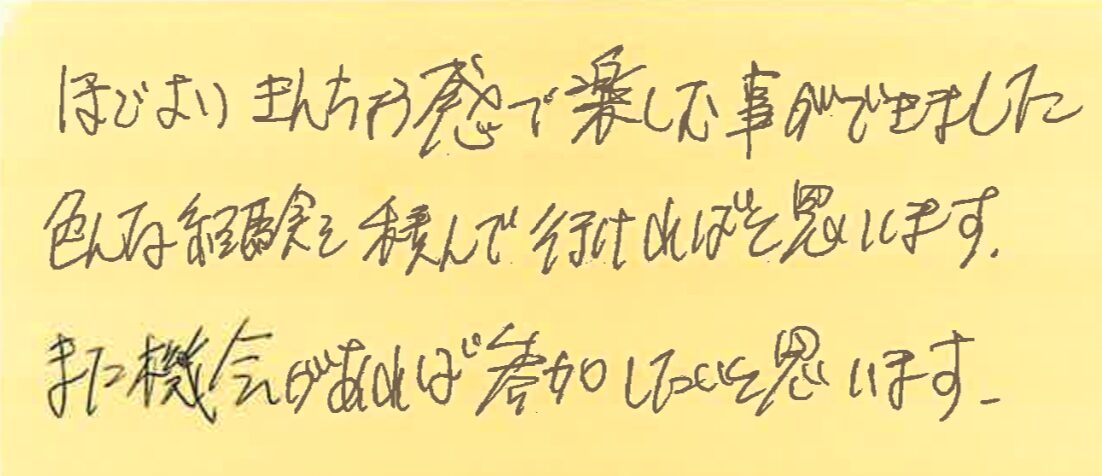 ほどよいきんちょう感で楽しむ事ができました
色んな経験を積んで行ければと思います.
また機会があれば参加したいと思います.